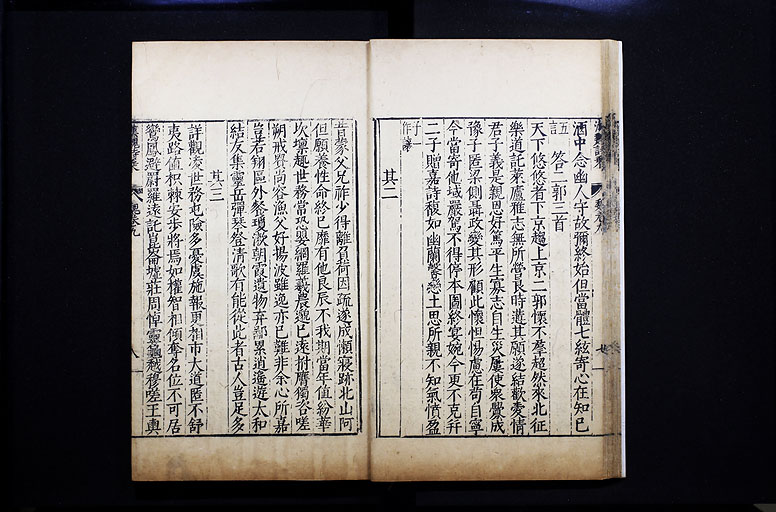 酒中念幽人守故彌終始但當體七絃寄心在知己
五言 答二郭三首
天下悠悠者下京趨上京二郭懷不羣超然來北征
樂道託萊廬雅志無所營良時遘其願遂結歡愛情
君子義是親恩好篤平生寡志自生災屢使衆釁成
豫子匿梁側聶政變其形顧此懷怛惕慮在苟自寧
今當寄他域嚴駕不得停本圖終宴婉今更不克并
二子贈嘉詩馥如幽蘭馨戀土思所親不知氣憤盈
子作能
其二
昔蒙父兄祚少得離負荷因疏遂成懶寢跡北山阿
但願養性命終已靡有他良辰不我期當年值紛華
坎壈趣世務常恐嬰網羅羲農邈已遠拊膺獨咨嗟
朔戒貴尚容漁父好揚波雖逸亦已難非余心所嘉
豈若翔區外飡瓊漱朝霞遺物弃鄙累逍遙遊太和
結友集靈岳彈琴登清歌有能從此者古人豈足多
其三
詳觀凌世務屯險多憂虞施報更相市大道匿不舒
夷路值枳棘安步將焉如權智相傾奪名位不可居
鸞鳳避罻羅遠託崑崙墟莊周悼靈龜越穆嗟王輿